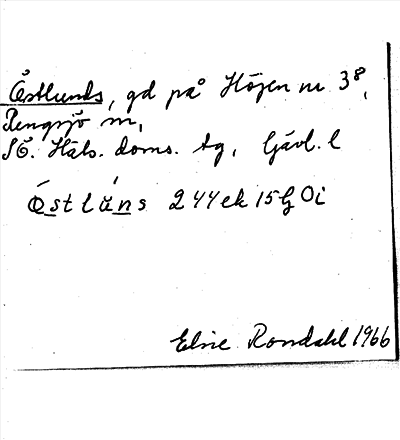 Östlunds, gd på Höjen nr 3⁸,
Rengsjö sn,
SÖ. Häls. doms. tg, Gävl. l
Östlúns 244ek15GOi
Elsie Rondahl 1966